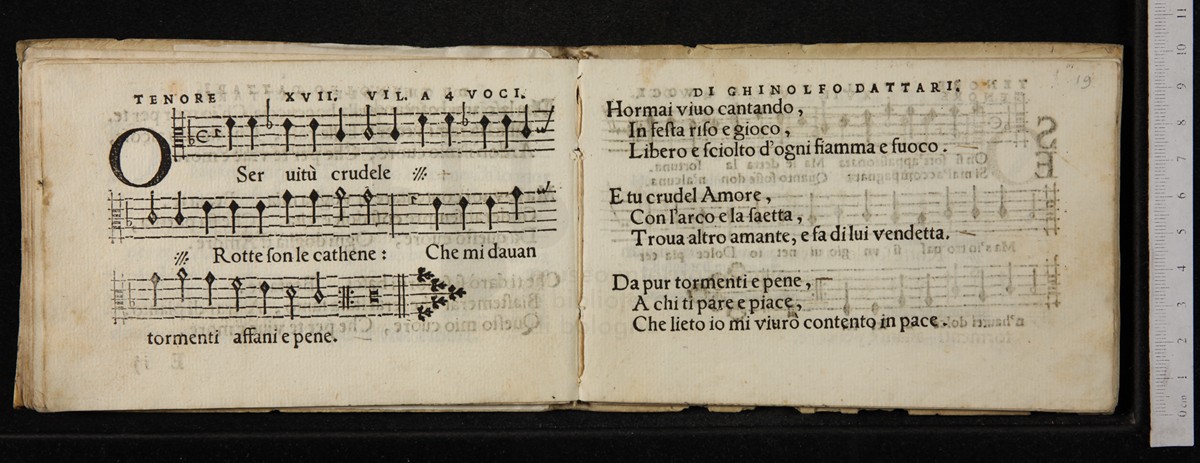 TENORE XVII. VIL. A 4 VOCI.
O Ser uitù crudele
Rotte ſon le cathene : Che mi dauan
tormenti affani e pene.
DI GHINOLFO DATTARI.
19
Hormai viuo cantando ,
In feſta riſo e gioco ,
Libero e ſciolto d'ogni fiamma e fuoco .
E tu crudel Amore ,
Con l'arco e la ſaetta ,
Troua altro amante, e fa di lui vendetta.
Da pur tormenti e pene ,
A chi ti pare e piace ,
Che lieto io mi viurò contento in pace .
0 cm 1 2 3 4 5 6 7 8 9 10 11